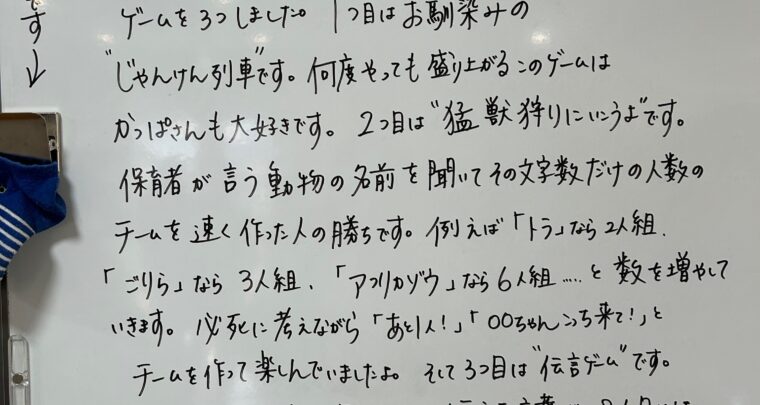 です↓
ゲームを3つしました。 1つ目はお馴染みの
"じゃんけん列車"です。何度やっても盛り上がるこのゲームは
かっぱさんも大好きです。 2つ目は"猛獣狩りにいこうよ"です。
保育者が言う動物の名前を聞いてその文字数だけの人数の
チームを速く作った人の勝ちです。例えば「トラ」なら2人組、
「ごりら」なら 3人組、「アフリカゾウ」なら6人組.....と 数を増やして
いきます。 必死に考えながら「あと1人!」「〇〇ちゃんこっち来て!」と
チームを作って楽しんでいましたよ。 そして3つ目は"伝言ゲーム"です。